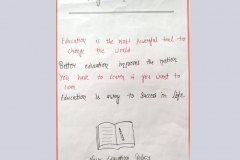 Education is the most powerful tool to
change the world
Better education improves the nation
You have to learn if you want to
Education is away to Success in Life
New Education Policy